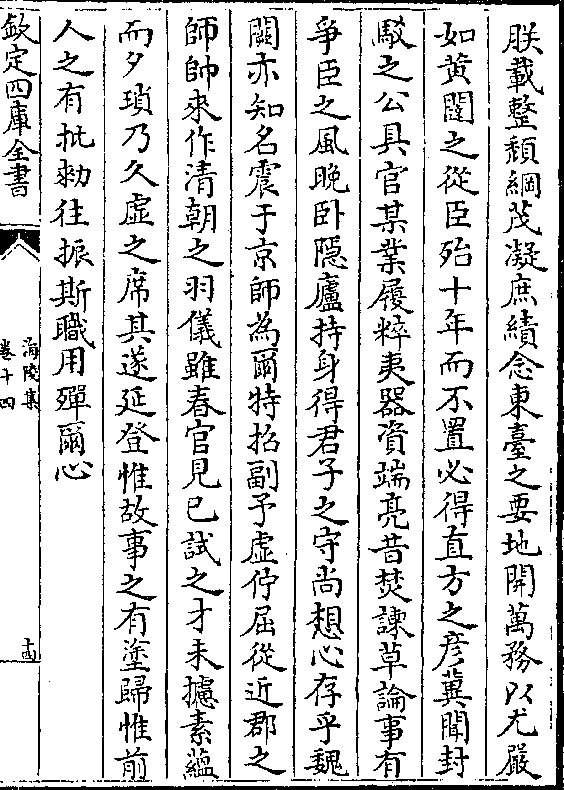 朕載整頹綱茂凝庶績念東臺之要地開萬務以尤嚴
如黄闥之從臣殆十年而不置必得直方之彦冀聞封
駮之公具官某業履粹夷器資端亮昔焚諫草論事有
爭臣之風晚卧隠廬持身得君子之守尚想心存乎魏
闕亦知名震于京師為爾特招副予虚佇屈從近郡之
師帥來作清朝之羽儀雖春官見已試之才未攄素藴
而夕瑣乃久虚之席其遂延登惟故事之有塗歸惟前
人之有批勑往振斯職用殫爾心
欽定四庫全書
海陵集
卷十四
十四